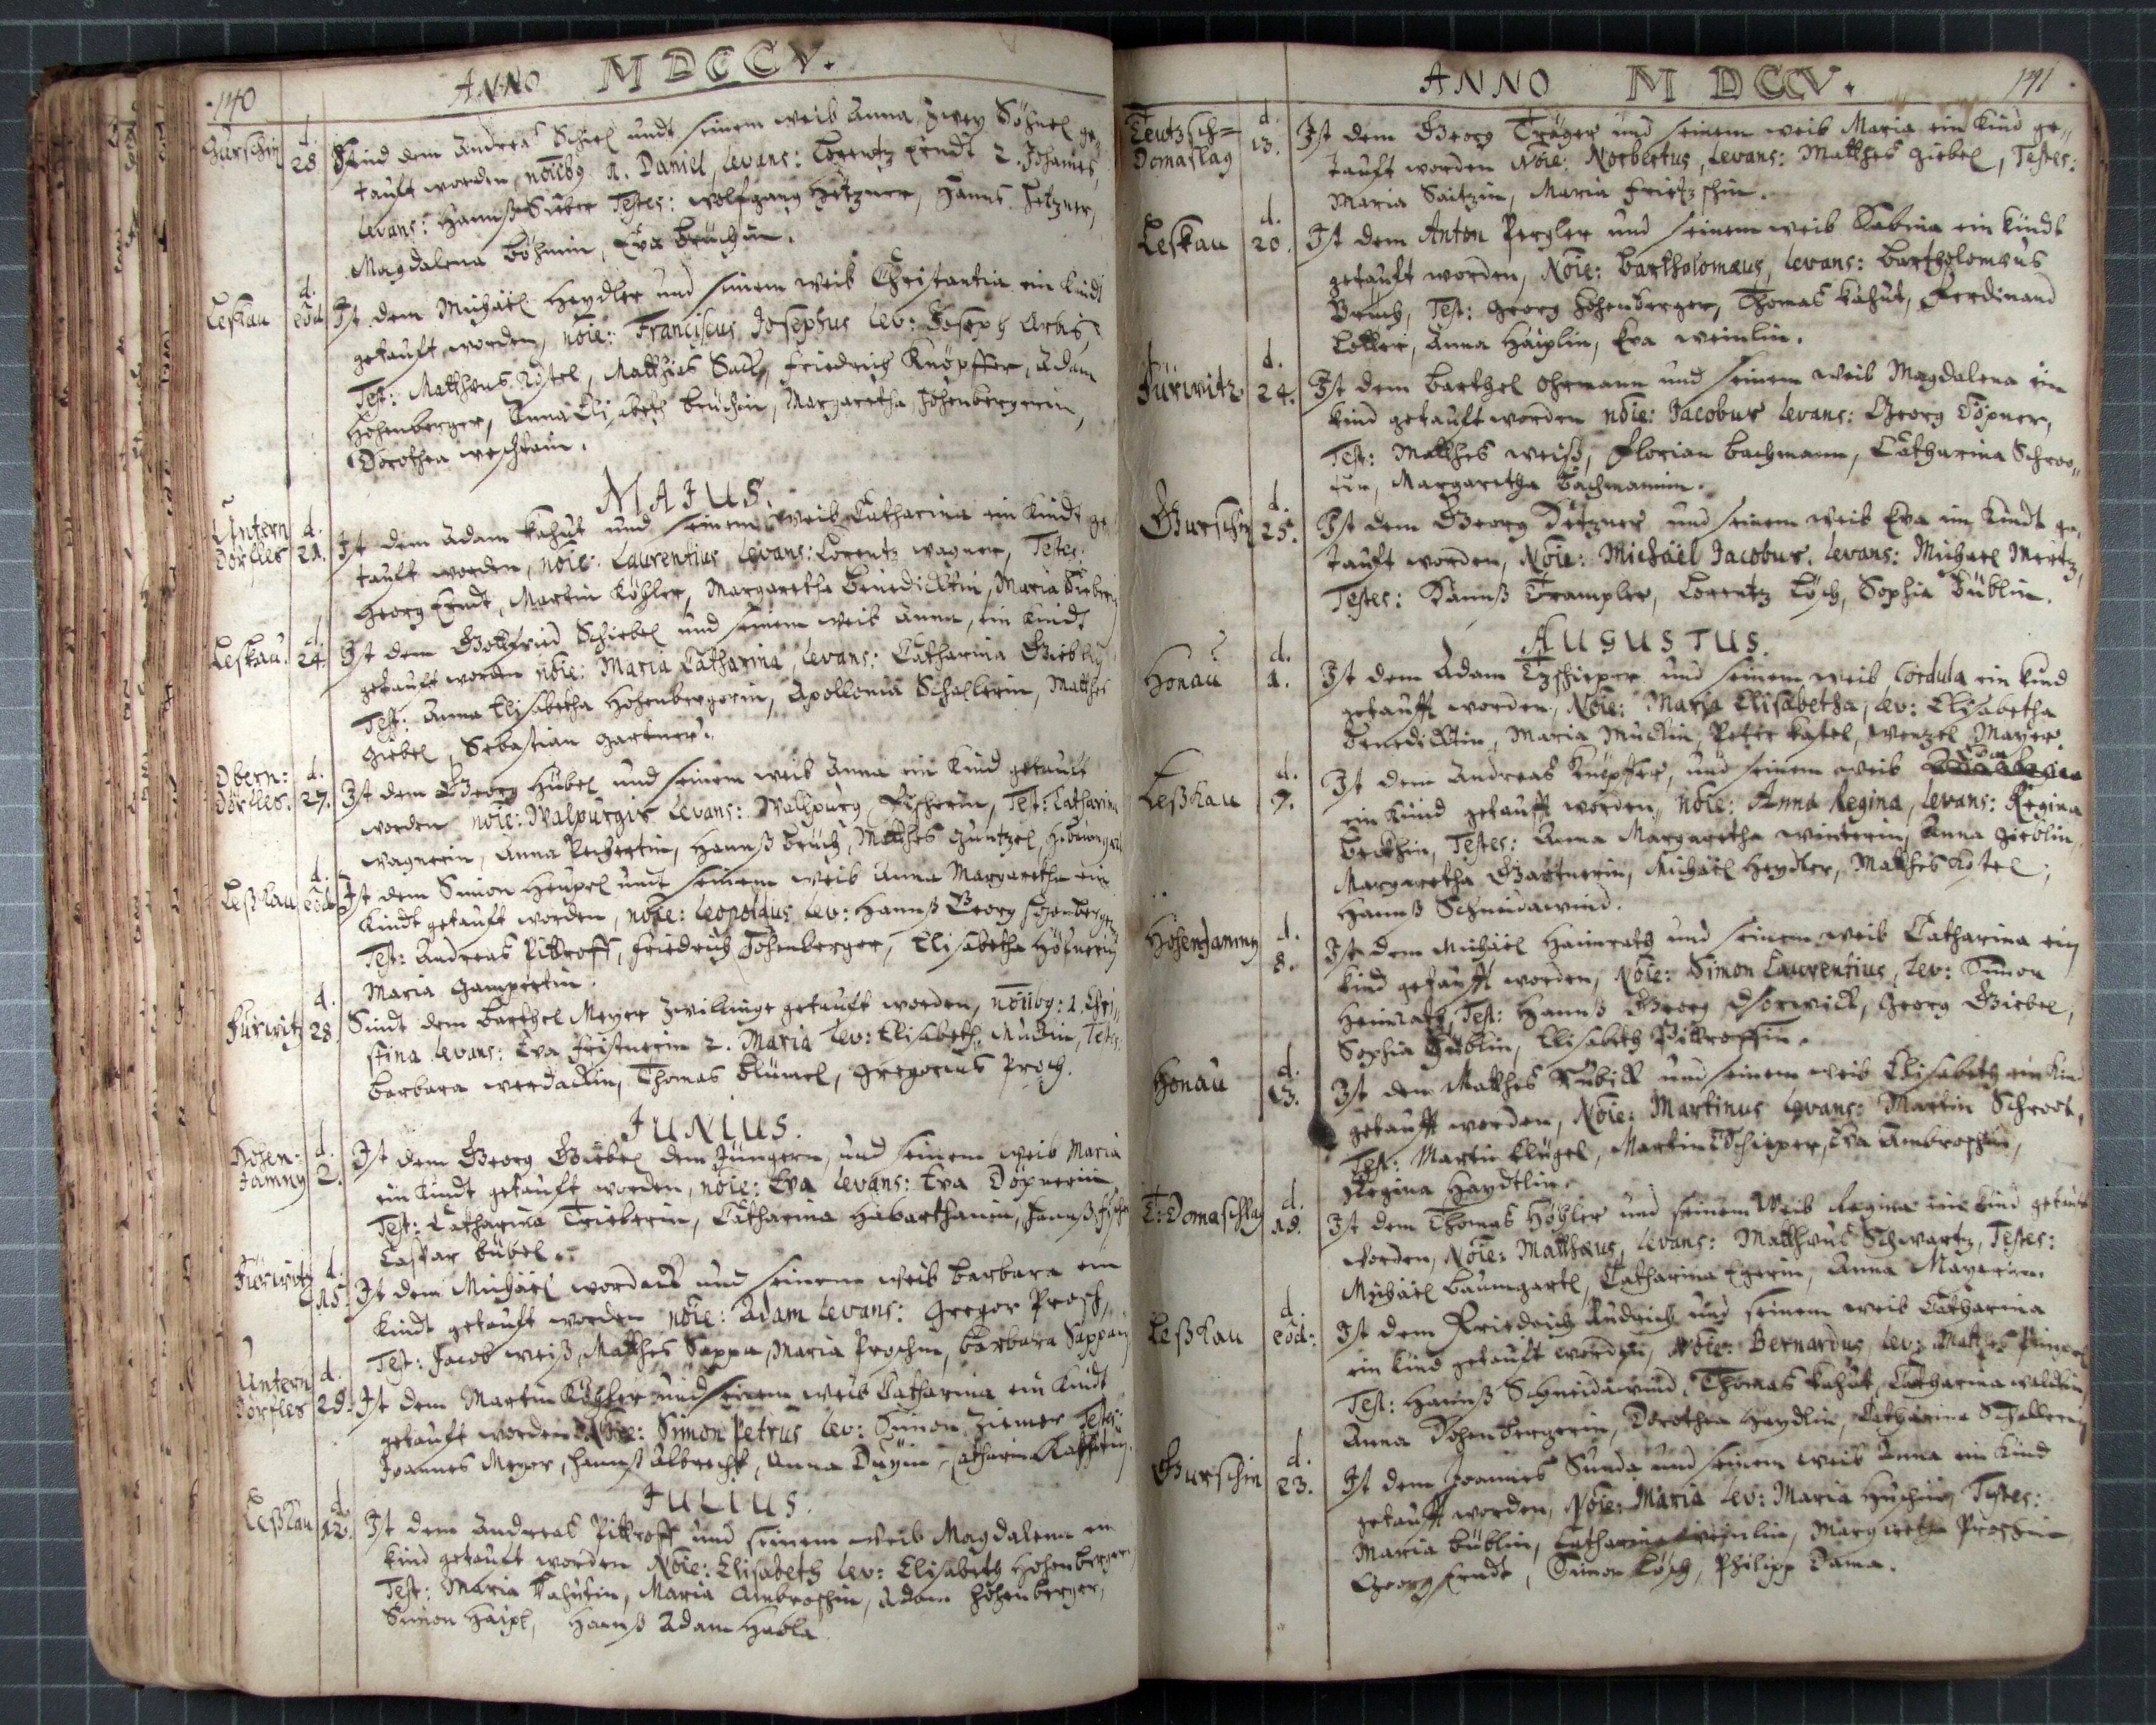 140
ANNO MDCCV.
Gurschin d. 28. Seind dem Andreas Schiel undt seinem weib Anna, zwey Söhnel ge„
taufft worden, noibg 1. Daniel, levans: Lorentz Endt 2. Johannes,
levans: Hannß Testes: Wolffgang Hetzner, Hanns Hetzner,
Magdalena Böhmin, Eva Bruchin.
Leskau d. eod. Ist dem Michäel Heydler und seinem weib Christantia ein kindt
getaufft worden, noie: Franciscus Josephus lev: Joseph
Test: Matthäus Kötel, Matthias, Friedrich Knöpffer, Adam
Hohenberger, Anna Elisabeth Bruchin, Margaretha Hohenbergerin,
Dorothea
MAJUS.
Untern Dörfles d. 21. Ist dem Adam Kahut und seinem weib Catharina ein kindt ge
taufft worden, noie: Laurentius levans: Lorentz Wagner, Testes:
Georg Endt, Martin Köhler, Margaretha Benedicktin, Maria
Leskau. d. 24. Ist dem Gottfried Schiebel und seinem weib Anna, ein kindt
getaufft worden noie: Maria Catharina, levans: Catharina
Test: Anna Elisabetha Hohenbergerin, Apollonia Schallerin, Matthes
Giebel, Sebastian Gartner.
Obern: Dörfles. d. 27. Ist dem Georg Hübel und seinem weib Anna ein kind getaufft
worden noie: Walpurgis levans: Wallpurg Fischerin, Test: Catharina
Wagnerin, Anna, Hannß Bruch, Matthes Guntzel,
Leßkau d. eod. Ist dem Simon Heupel undt seinem weib Anna Margaretha ein
kindt getaufft worden, noie: Leopoldus lev: Hannß Georg Hohenberger
Test: Andreas Pittroff, Friedrich Hohenberger, Elisabetha
Maria Gampertin.
Fürwitz d. 28. Sindt dem Barthel Meyer zwillinge getaufft worden, noiibg: 1. Chri„
stina levans: Eva 2. Maria lev: Elisabeth, Testes:
Barbara, Thomas Blümel, Gregorius Proch.
JUNIUS.
Hohen: Jamny d. 2. Ist dem Georg Giebel dem Jüngern, und seinem weib Maria
ein kindt getaufft worden, noie: Eva levans: Eva Döpnerin
Test: Catharina Trieberin, Catharina, Hannß
Caspar Bübel.
Fürwitz d. 15. Ist dem Michäel und seinem weib Barbara ein
kindt getaufft worden noie: Adam levans: Gregor Prosch,
Test: Jacob Weiß, Matthes Sappa, Maria Proschin, Barbara Sappain
Untern Dörfles d. 29. Ist dem Martin Köhler und seinem weib Catharina ein kindt
getaufft worden Noie: Simon Petrus lev: Simon Ziener Testes:
Joannes Meyer, Hannß Albrecht, Anna, Catharina
JULIUS.
Leßkau d. 12. Ist dem Andreas Pittroff und seinem weib Magdalena ein
kind getaufft worden Noie: Elisabeth lev: Elisabeth Hohenbergerin
Test: Maria Kahutin, Maria Ambroschin, Adam Hohenberger,
Simon Haipl, Hannß Adam Habla
ANNO MDCCV.
141
Teutsch= Domaslag d. 13. Ist dem Georg Träger und seinem weib Maria ein kind ge„
taufft worden Noie: Norbertus, levans: Matthes Giebel, Testes:
Maria Saitzin, Maria
Leskau d. 20. Ist dem Anton Pergler und seinem weib Sabina ein kindt
getaufft worden, Noie: Bartholomæus, levans: Bartholomæus
Bruch, Test: Georg Hohenberger, Thomas Kahut, Ferdinand
Lotter, Anna Haiplin, Eva Weinlin.
Fürwitz d. 24. Ist dem Barthel Ohrmann und seinem weib Magdalena ein
kind getaufft worden noie: Jacobus levans: Georg Töpner,
Test: Matthes Weiß, Florian Bachmann, Catharina Schroo„
tin, Margaretha Bachmannin.
Gurschin d. 25. Ist dem Georg Detzner und seinem weib Eva ein kindt ge„
taufft worden, Noie: Michäel Jacobus. levans: Michael Mertz,
Testes: Hannß Trampler, Lorentz Lösch, Sophia Büblin.
AUGUSTUS.
Honau d. 1. Ist dem Adam Tzschieper und seinem weib Cordula ein kind
getaufft worden, Noie: Maria Elisabetha, lev: Elisabetha
Benedicktin, Maria, Peter, Wenzel Mayer.
Leßkau d. 7. Ist dem Andreas Knöpffer, und seinem weib
ein kind getaufft worden, noie: Anna Regina, levans: Regina
Testes: Anna Margaretha Winterin, Anna Gieblin,
Margaretha Gartnerin, Michäel Heydler, Matthes Kötel,
Hannß Schneidawind.
HohenJamny d. 8. Ist dem Michäel Heinrath und seinem weib Catharina ein
kind getaufft worden, Noie: Simon Laurentius, lev: Simon
Heinrath, Test: Hannß Georg, Georg Giebel,
Sophia Büblin, Elisabeth Pittroffin.
Honau d. 13. Ist dem Matthes und seinem weib Elisabeth ein kind
getaufft worden, Noie: Martinus levans: Martin Schroot,
Test: Martin Klügel, Martin Tschieper, Eva Ambroschin,
Regina Haydtlin.
T: Domaschlag d. 19. Ist dem Thomas Köhler und seinem Weib Regina ein kind getaufft
worden, Noie: Matthæus, levans: Matthæus Schwartz, Testes:
Michäel Baumgartl, Catharina Egerin, Anna Mayerin.
Leßkau d. eod: Ist dem Friedrich Rudrich und seinem weib Catharina
ein kind getaufft worden, Noie: Bernardus, lev: Matthes
Test: Hannß Schneidawind, Thomas Kahut, Catharina
Anna Hohenbergerin, Dorothea Haydlin, Catharina Schallerin
Gurschin d. 23. Ist dem Joannes Sunda und seinem weib Anna ein kind
getaufft worden, Noie: Maria lev: Maria, Testes:
Maria Büblin, Catharina Weinlin, Margaretha Proschin
Georg Endt, Simon Lösch, Philipp Dama.